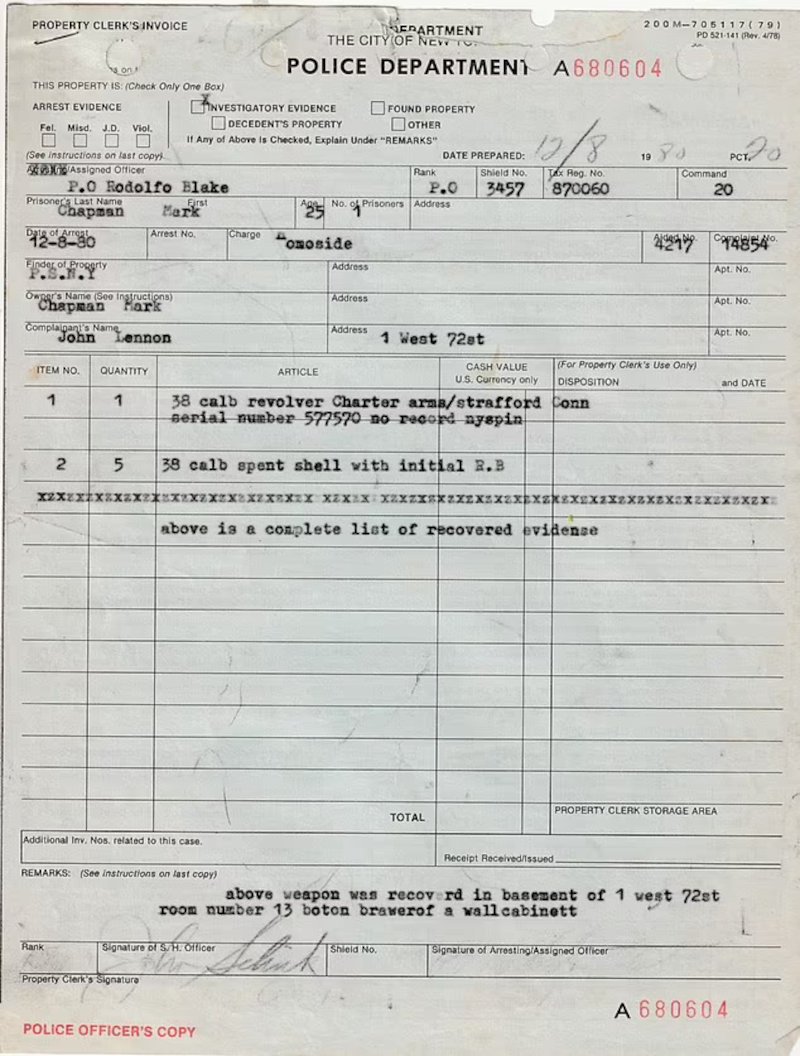 PROPERTY CLERK'S INVOICE
DEPARTMENT
THE CITY OF NEW
POLICE DEPARTMENT A680604
200M-705117(79)
PD 521-141 (Rev. 4/78)
THIS PROPERTY IS: (Check Only One Box)
ARREST EVIDENCE
Fel. Misd. J.D. Viol.
X INVESTIGATORY EVIDENCE FOUND PROPERTY
DECEDENT'S PROPERTY OTHER
If Any of Above Is Checked, Explain Under "REMARKS"
(See instructions on last copy)
DATE PREPARED: 12/8 19 80 PCT. 20
/Assigned Officer Rank Shield No. Tax Reg. No. Command
P.O Rodolfo Blake P.O 3457 870060 20
Prisoner's Last Name First Age No. of Prisoners Address
Chapman Mark 25 1
Date of Arrest Arrest No. Charge Aided No. Complaint No.
12-8-80 Homoside 4217 14854
Finder of Property Address Apt. No.
P.S.N.Y
Owner's Name (See Instructions) Address Apt. No.
Chapman Mark
Complainant's Name Address Apt. No.
John Lennon 1 West 72st
ITEM NO. QUANTITY ARTICLE CASH VALUE
U.S. Currency only
(For Property Clerk's Use Only)
DISPOSITION and DATE
1 1 38 calb revolver Charter arms/strafford Conn
serial number 577570 no record nyspin
2 5 38 calb spent shell with initial R.B
above is a complete list of recovered evidense
TOTAL
PROPERTY CLERK STORAGE AREA
Additional Inv. Nos. related to this case.
Receipt Received/Issued
REMARKS: (See instructions on last copy)
above weapon was recov rd in basement of 1 west 72st
room number 13 boton brawerof a wallcabinett
Rank Signature of S.H. Officer Shield No. Signature of Arresting/Assigned Officer
Property Clerk's Signature
A 680604
POLICE OFFICER'S COPY